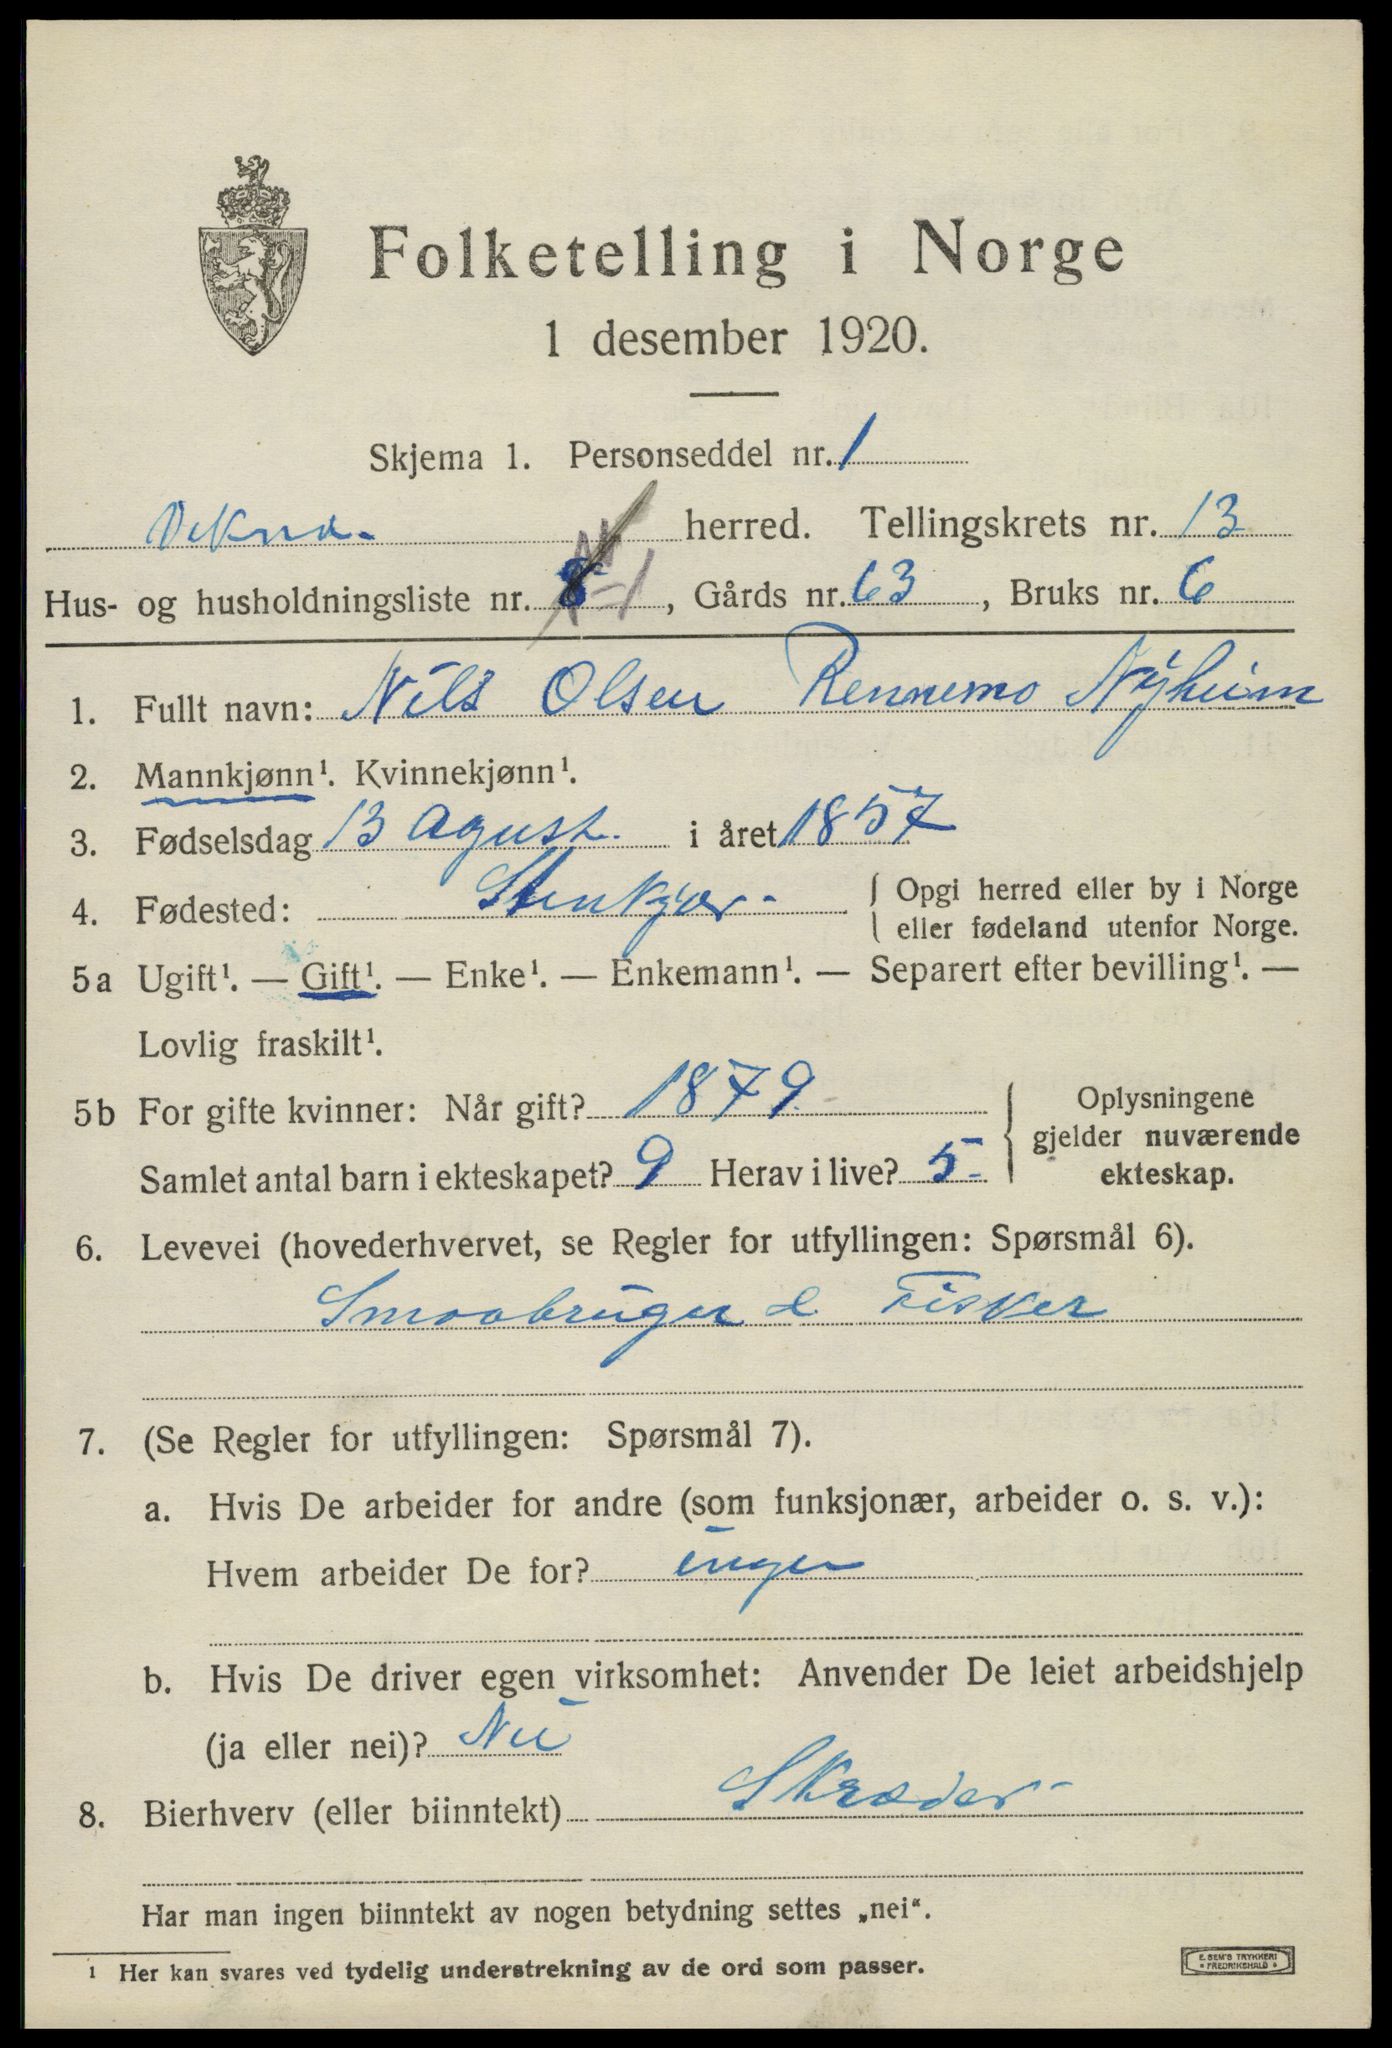 Folketelling i Norge
1 desember 1920.
Skjema 1. Personseddel nr. 1
Vikna. herred. Tellingskrets nr. 13
Hus- og husholdningsliste nr. , Gårds nr. 63, Bruks nr. 6
1. Fullt navn: Nils Olsen Rennemo Nyheim
2. Mannkjønn¹. Kvinnekjønn¹.
3. Fødselsdag 13 Agust. i året 1857
4. Fødested: Stenkjær - { Opgi herred eller by i Norge
eller fødeland utenfor Norge.
5a Ugift¹. — Gift¹. — Enke¹. — Enkemann¹. — Separert efter bevilling¹. —
Lovlig fraskilt¹.
5b For gifte kvinner: Når gift? 1879. { Oplysningene
gjelder nuværende
Samlet antal barn i ekteskapet? 9 Herav i live? 5- ekteskap.
6. Levevei (hovederhvervet, se Regler for utfyllingen: Spørsmål 6).
Smaabruger & Fisker
7. (Se Regler for utfyllingen: Spørsmål 7).
a. Hvis De arbeider for andre (som funksjonær, arbeider o. s. v.):
Hvem arbeider De for? ingen
b. Hvis De driver egen virksomhet: Anvender De leiet arbeidshjelp
(ja eller nei)? Nei
8. Bierhverv (eller biinntekt) Skræder -
Har man ingen biinntekt av nogen betydning settes „nei“.
¹ Her kan svares ved tydelig understrekning av de ord som passer.
E. SEM'S TRYKKERI
* FREDRIKSHALD *